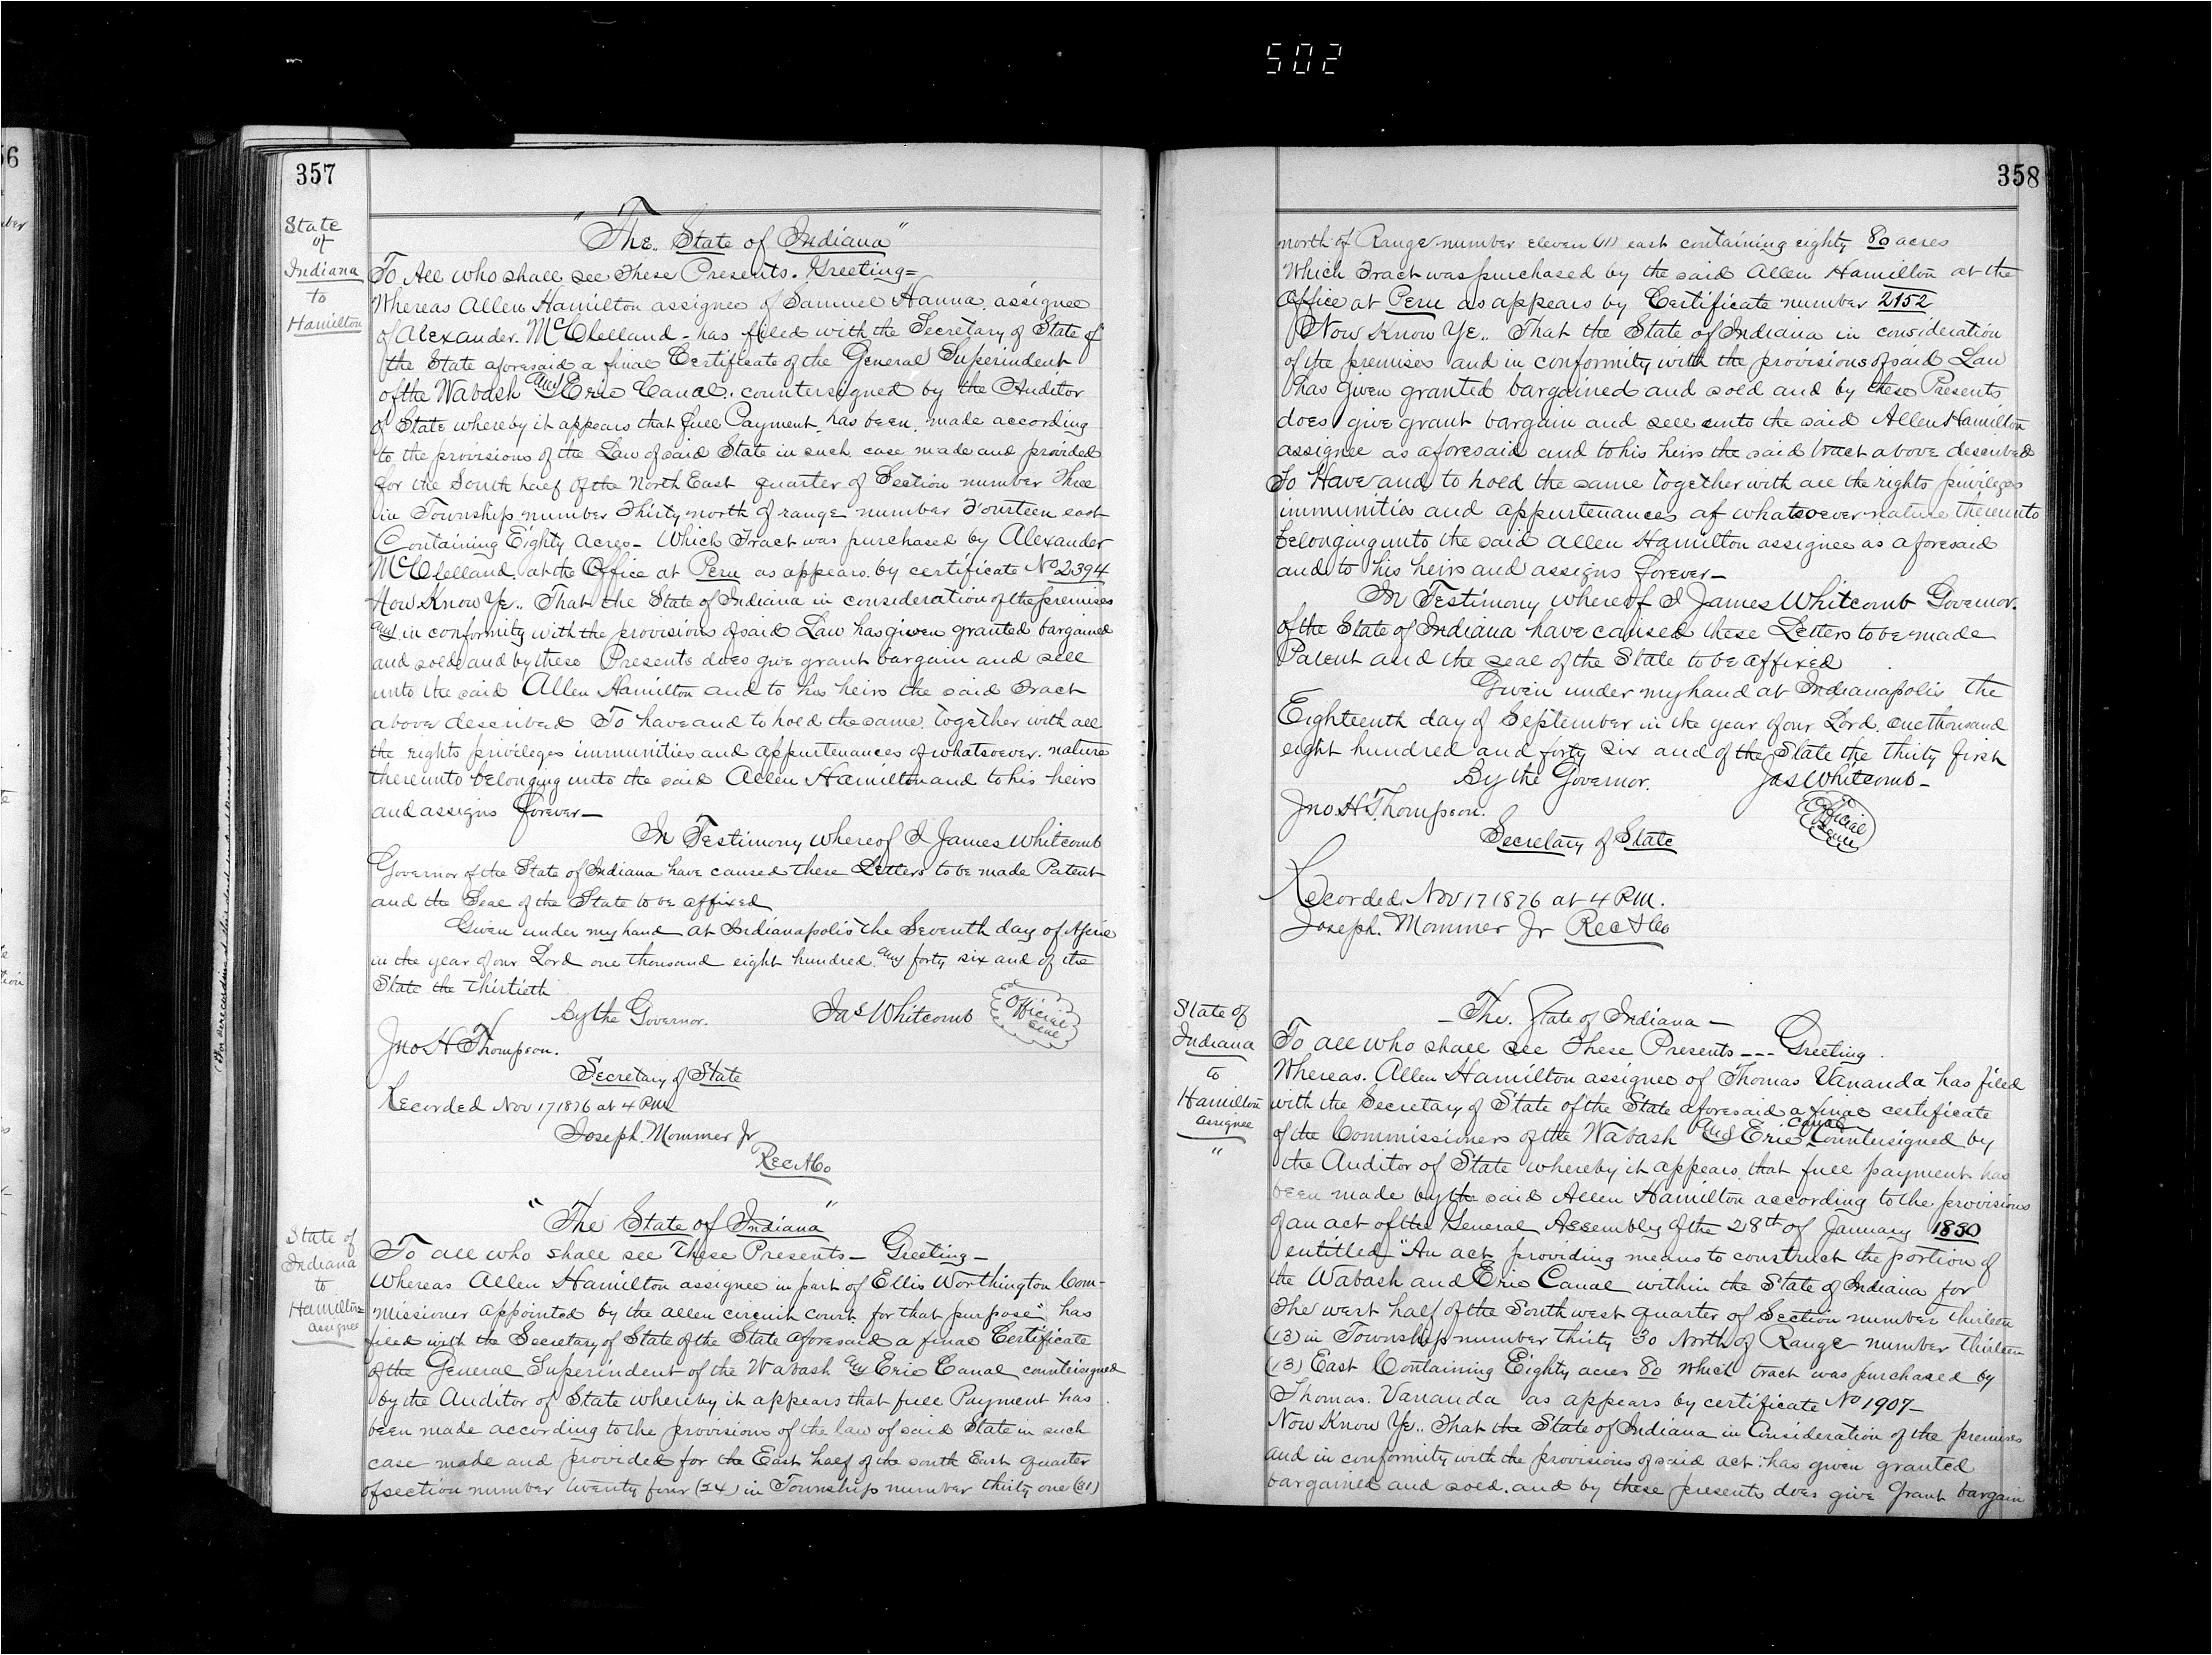 502
56
357
State
of
Indiana
to
Hamilton
"The State of Indiana"
To All who shall see These Presents. Greeting=
Whereas Allen Hamilton assignee of Samuel Hanna assignee
of Alexander McClelland - has filed with the Secretary of State of
the State aforesaid a final Certificate of the General Superindent
of the Wabash and Erie Canal, countersigned by the Auditor
of State whereby it appears that full Payment has been made according
to the provisions of the Law of said State in such case made and provided
for the South half of the North East quarter of Section number Three
in Township number Thirty north of range number Fourteen east
Containing Eighty acres - Which Tract was purchased by Alexander
McClelland at the Office at Peru as appears by certificate No 2394
Now Know Ye.. That the State of Indiana in consideration of the premises
and in conformity with the provisions of said Law has given granted bargained
and sold and by these Presents does give grant bargain and sell
unto the said Allen Hamilton and to his heirs the said Tract
above described To have and to hold the same together with all
the rights privileges immunities and appurtenances of whatsoever nature
thereunto belonging unto the said Allen Hamilton and to his heirs
and assigns forever—
In Testimony whereof I James Whitcomb
Governor of the State of Indiana have caused these Letters to be made Patent
and the Seal of the State to be affixed
Given under my hand at Indianapolis the Seventh day of April
in the year of our Lord one thousand eight hundred and forty six and of the
State the Thirtieth
By the Governor. Jas Whitcomb Official Seal
Jno H Thompson.
Secretary of State
Recorded Nov 17 1876 at 4 P.M.
Joseph. Mommer Jr
Rec A Co
State of
Indiana
to
Hamilton
Assignee
"The State of Indiana"
To all who shall see These Presents — Greeting —
Whereas Allen Hamilton assignee in part of Ellis Worthington Com-
missioner appointed by the allen circuit court for that purpose" has
filed with the Secretary of State of the State aforesaid a final Certificate
of the General Superindent of the Wabash & Erie Canal countersigned
by the Auditor of State whereby it appears that full Payment has
been made according to the provisions of the law of said State in such
case made and provided for the East half of the south East quarter
of section number twenty four (24) in Township number thirty one (31)
358
north of Range number eleven (11) east containing eighty 80 acres
Which Tract was purchased by the said Allen Hamilton at the
Office at Peru as appears by Certificate number 2152
Now Know Ye.. That the State of Indiana in consideration
of the premises and in conformity with the provisions of said Law
has given granted bargained and sold and by these Presents
does give grant bargain and sell unto the said Allen Hamilton
assignee as aforesaid and to his heirs the said tract above described
To Have and to hold the same together with all the rights privileges
immunities and appurtenances of whatsoever nature thereunto
belonging unto the said Allen Hamilton assignee as aforesaid
and to his heirs and assigns forever—
In Testimony whereof I James Whitcomb Governor.
of the State of Indiana have caused these Letters to be made
Patent and the seal of the State to be affixed
Given under my hand at Indianapolis the
Eighteenth day of September in the year of our Lord. one thousand
eight hundred and forty six and of the State the thirty first
By the Governor. Jas Whitcomb—
Jno. H. Thompson. Official Seal
Secretary of State
Recorded Nov 17 1876 at 4 P.M.
Joseph. Mommer Jr Rec A Co
State of
Indiana
to
Hamilton
assignee
"
— The. State of Indiana —
To all who shall see These Presents --- Greeting.
Whereas. Allen Hamilton assignee of Thomas Vananda has filed
with the Secretary of State of the State aforesaid a final certificate
of the Commissioners of the Wabash and Erie Canal Countersigned by
the Auditor of State whereby it appears that full payment has
been made by the said Allen Hamilton according to the provisions
of an act of the General Assembly of the 28th of January 1830
entitled "An act providing means to construct the portion of
the Wabash and Erie Canal within the State of Indiana for
The west half of the South west quarter of Section number thirteen
(13) in Township number thirty 30 North of Range number thirteen
(13) East Containing Eighty acres 80 which tract was purchased by
Thomas. Vananda as appears by certificate No 1907—
Now Know Ye.. That the State of Indiana in Consideration of the premises
and in conformity with the provisions of said act: has given granted
bargained and sold. and by these presents does give grant bargain